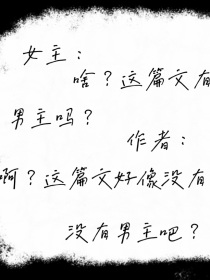 女主：
啥？这篇文有
男主吗？
作者：
啊？这篇文好像没有
没有男主吧？